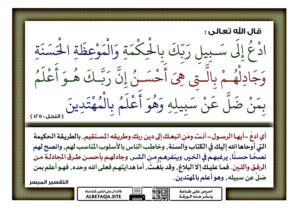 قال الله تعالى :
ادْعُ إِلَى سَبِيلِ رَبِّكَ بِالْحِكْمَةِ وَالْمَوْعِظَةِ الْحَسَنَةِ
وَجَادِلْهُم بِالَّتِي هِيَ أَحْسَنُ إِنَّ رَبَّكَ هُوَ أَعْلَمُ
بِمَن ضَلَّ عَن سَبِيلِهِ وَهُوَ أَعْلَمُ بِالْمُهْتَدِينَ
( النحل : ١٢٥ )
أي ادع -أيها الرسول- أنت ومَن اتبعك إلى دين ربك وطريقه المستقيم، بالطريقة الحكيمة
التي أوحاها الله إليك في الكتاب والسنة، وخاطِب الناس بالأسلوب المناسب لهم، وانصح لهم
نصحًا حسنًا، يرغبهم في الخير، وينفرهم من الشر، وجادلهم بأحسن طرق المجادلة من
الرفق واللين. فما عليك إلا البلاغ، وقد بلغت، أما هدايتهم فعلى الله وحده، فهو أعلم بمن
ضلّ عن سبيله، وهو أعلم بالمهتدين.
التفسير الميسر
ALBETAQA.SITE
احرص على طباعة
ونشر هذه الورقة